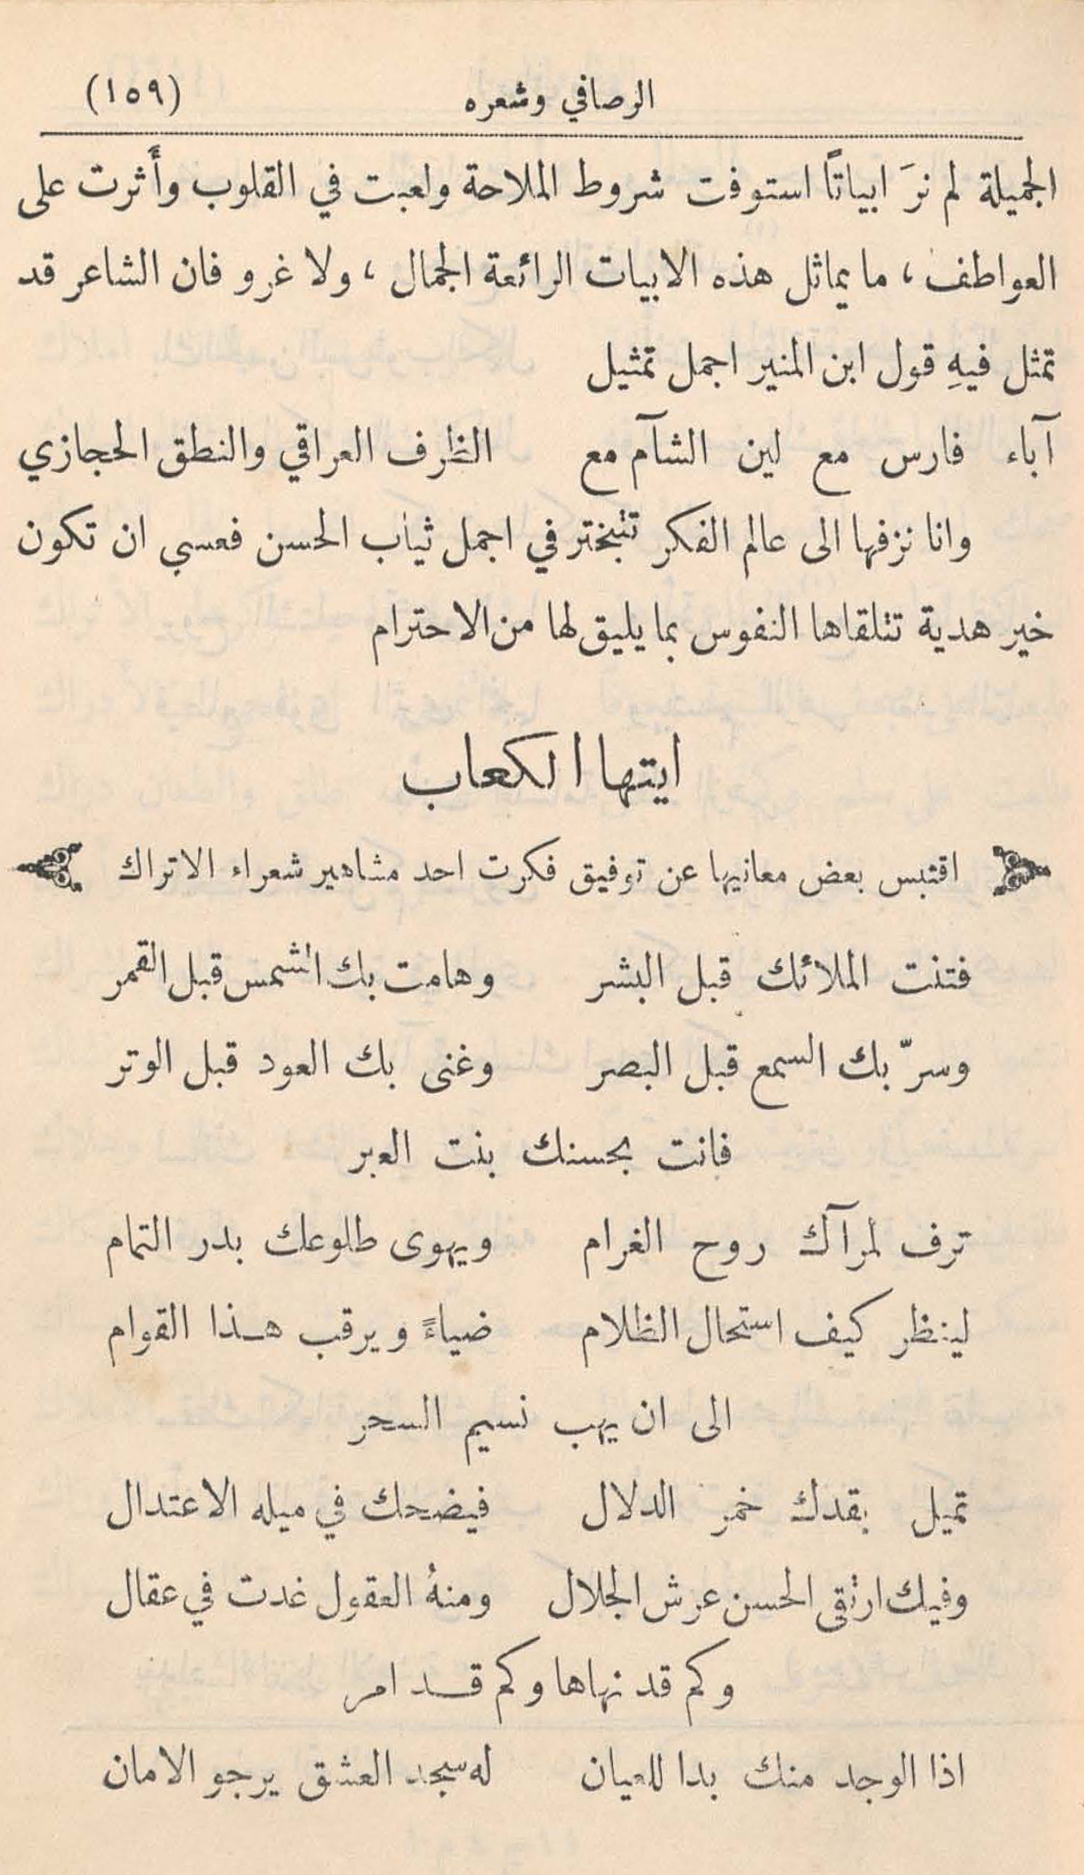 الرصافي وشعره (١٥٩)
الجميلة لم نرَ ابياتًا استوفت شروط الملاحة ولعبت في القلوب وأَثرت على
العواطف ، ما يماثل هذه الابيات الرائعة الجمال ، ولا غرو فان الشاعر قد
تمثل فيهِ قول ابن المنير اجمل تمثيل
آباء فارس مع لين الشآم مع الظرف العراقي والنطق الحجازي
وانا نزفها الى عالم الفكر تتبختر في اجمل ثياب الحسن فعسى ان تكون
خير هدية تتلقاها النفوس بما يليق لها من الاحترام
ايتها الكعاب
اقتبس بعض معانيها عن توفيق فكرت احد مشاهير شعراء الاتراك
فتنت الملائك قبل البشر وهامت بك الشمس قبل القمر
وسرّ بك السمع قبل البصر وغنى بك العود قبل الوتر
فانت بحسنك بنت العبر
ترف لمرآك روح الغرام ويهوى طلوعك بدر التمام
لينظر كيف استحال الظلام ضياءً ويرقب هذا القوام
الى ان يهب نسيم السحر
تميل بقدك خمر الدلال فيضحك في ميله الاعتدال
وفيك ارتقى الحسن عرش الجلال ومنهُ العقول غدت في عقال
وكم قد نهاها وكم قد امر
اذا الوجد منك بدا للعيان له سجد العشق يرجو الامان